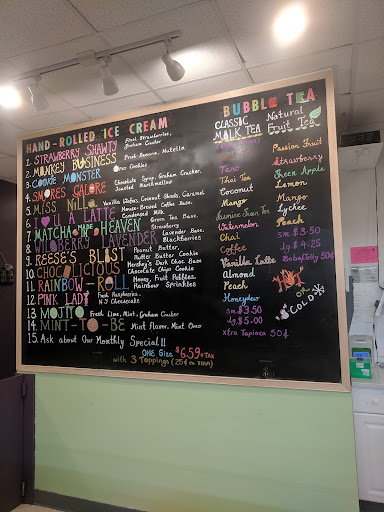 HAND-ROLLED ICE CREAM
1. STRAWBERRY SHAWTY Fresh Strawberries, Graham Cracker
2. MONKEY BUSINESS Fresh Banana, Nutella
3. COOKIE MONSTER Oreo Cookies
4. SMORES GALORE Chocolate Syrup, Graham Cracker, Toasted Marshmallow
5. MISS NILLA Vanilla Wafers, Coconut Shreds, Caramel
6. LUV U A LATTE House-Brewed Coffee Base, Condensed Milk
7. MATCHA HEAVEN Green Tea Base, Strawberry
8. WILDBERRY LAVENDER Lavender Base, Blackberries
9. REESE'S BLAST Peanut Butter, Nutter Butter Cookie
10. CHOCOLICIOUS Hershey's Dark Choc Base, Chocolate Chips Cookie
11. RAINBOW-ROLL Honey, Fruit Pebbles, Rainbow Sprinkles
12. PINK LADY Fresh Raspberries, NJ Cheesecake
13. MOJITO Fresh Lime, Mint, Graham Cracker
14. MINT-TO-BE Mint Flavor, Mint Oreo
15. Ask about Our Monthly Special!!
ONE Size $6.59+TAX
with 3 Toppings (25¢
BUBBLE TEA
CLASSIC MILK TEA
Taro
Thai Tea
Coconut
Mango
Jasmine Green Tea
Watermelon
Chai
Coffee
Vanilla Latte
Almond
Peach
Honeydew
sm $3.50
lg $5.00
Xtra Tapioca 50¢
Natural Fruit Tea
Passion Fruit
Strawberry
Green Apple
Lemon
Mango
Lychee
Peach
sm $3.50
lg $4.25
Boba/Jelly 50¢
HOT
or
COLD